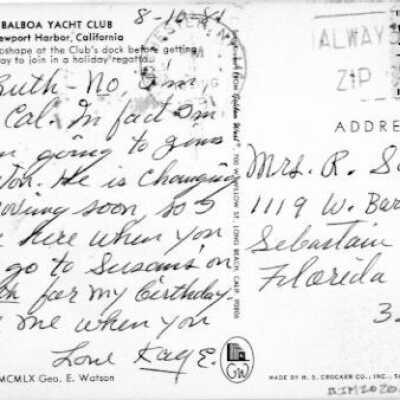 BALBOA YACHT CLUB
ewport Harbor, California
pshape at the Club's dock before getting
ay to join in a holiday regatta.
8-10-81
Ruth - No, I'm
Cal. In fact I'm
going to
ton. He is changing
soon, so I
here when you
go to Susan's on
for my Birthday.
me when you
Love Kay E.
MCMLX Geo. E. Watson
ALWAYS
ZIP
"Golden West"
WINSLOW ST. LONG BEACH, CALIF. 90806
GW
ADDRE
Mrs. R. S
1119 W. Bar
Sebastain
Florida
3
MADE BY H. S. CROCKER CO., INC.,
BIM2020.